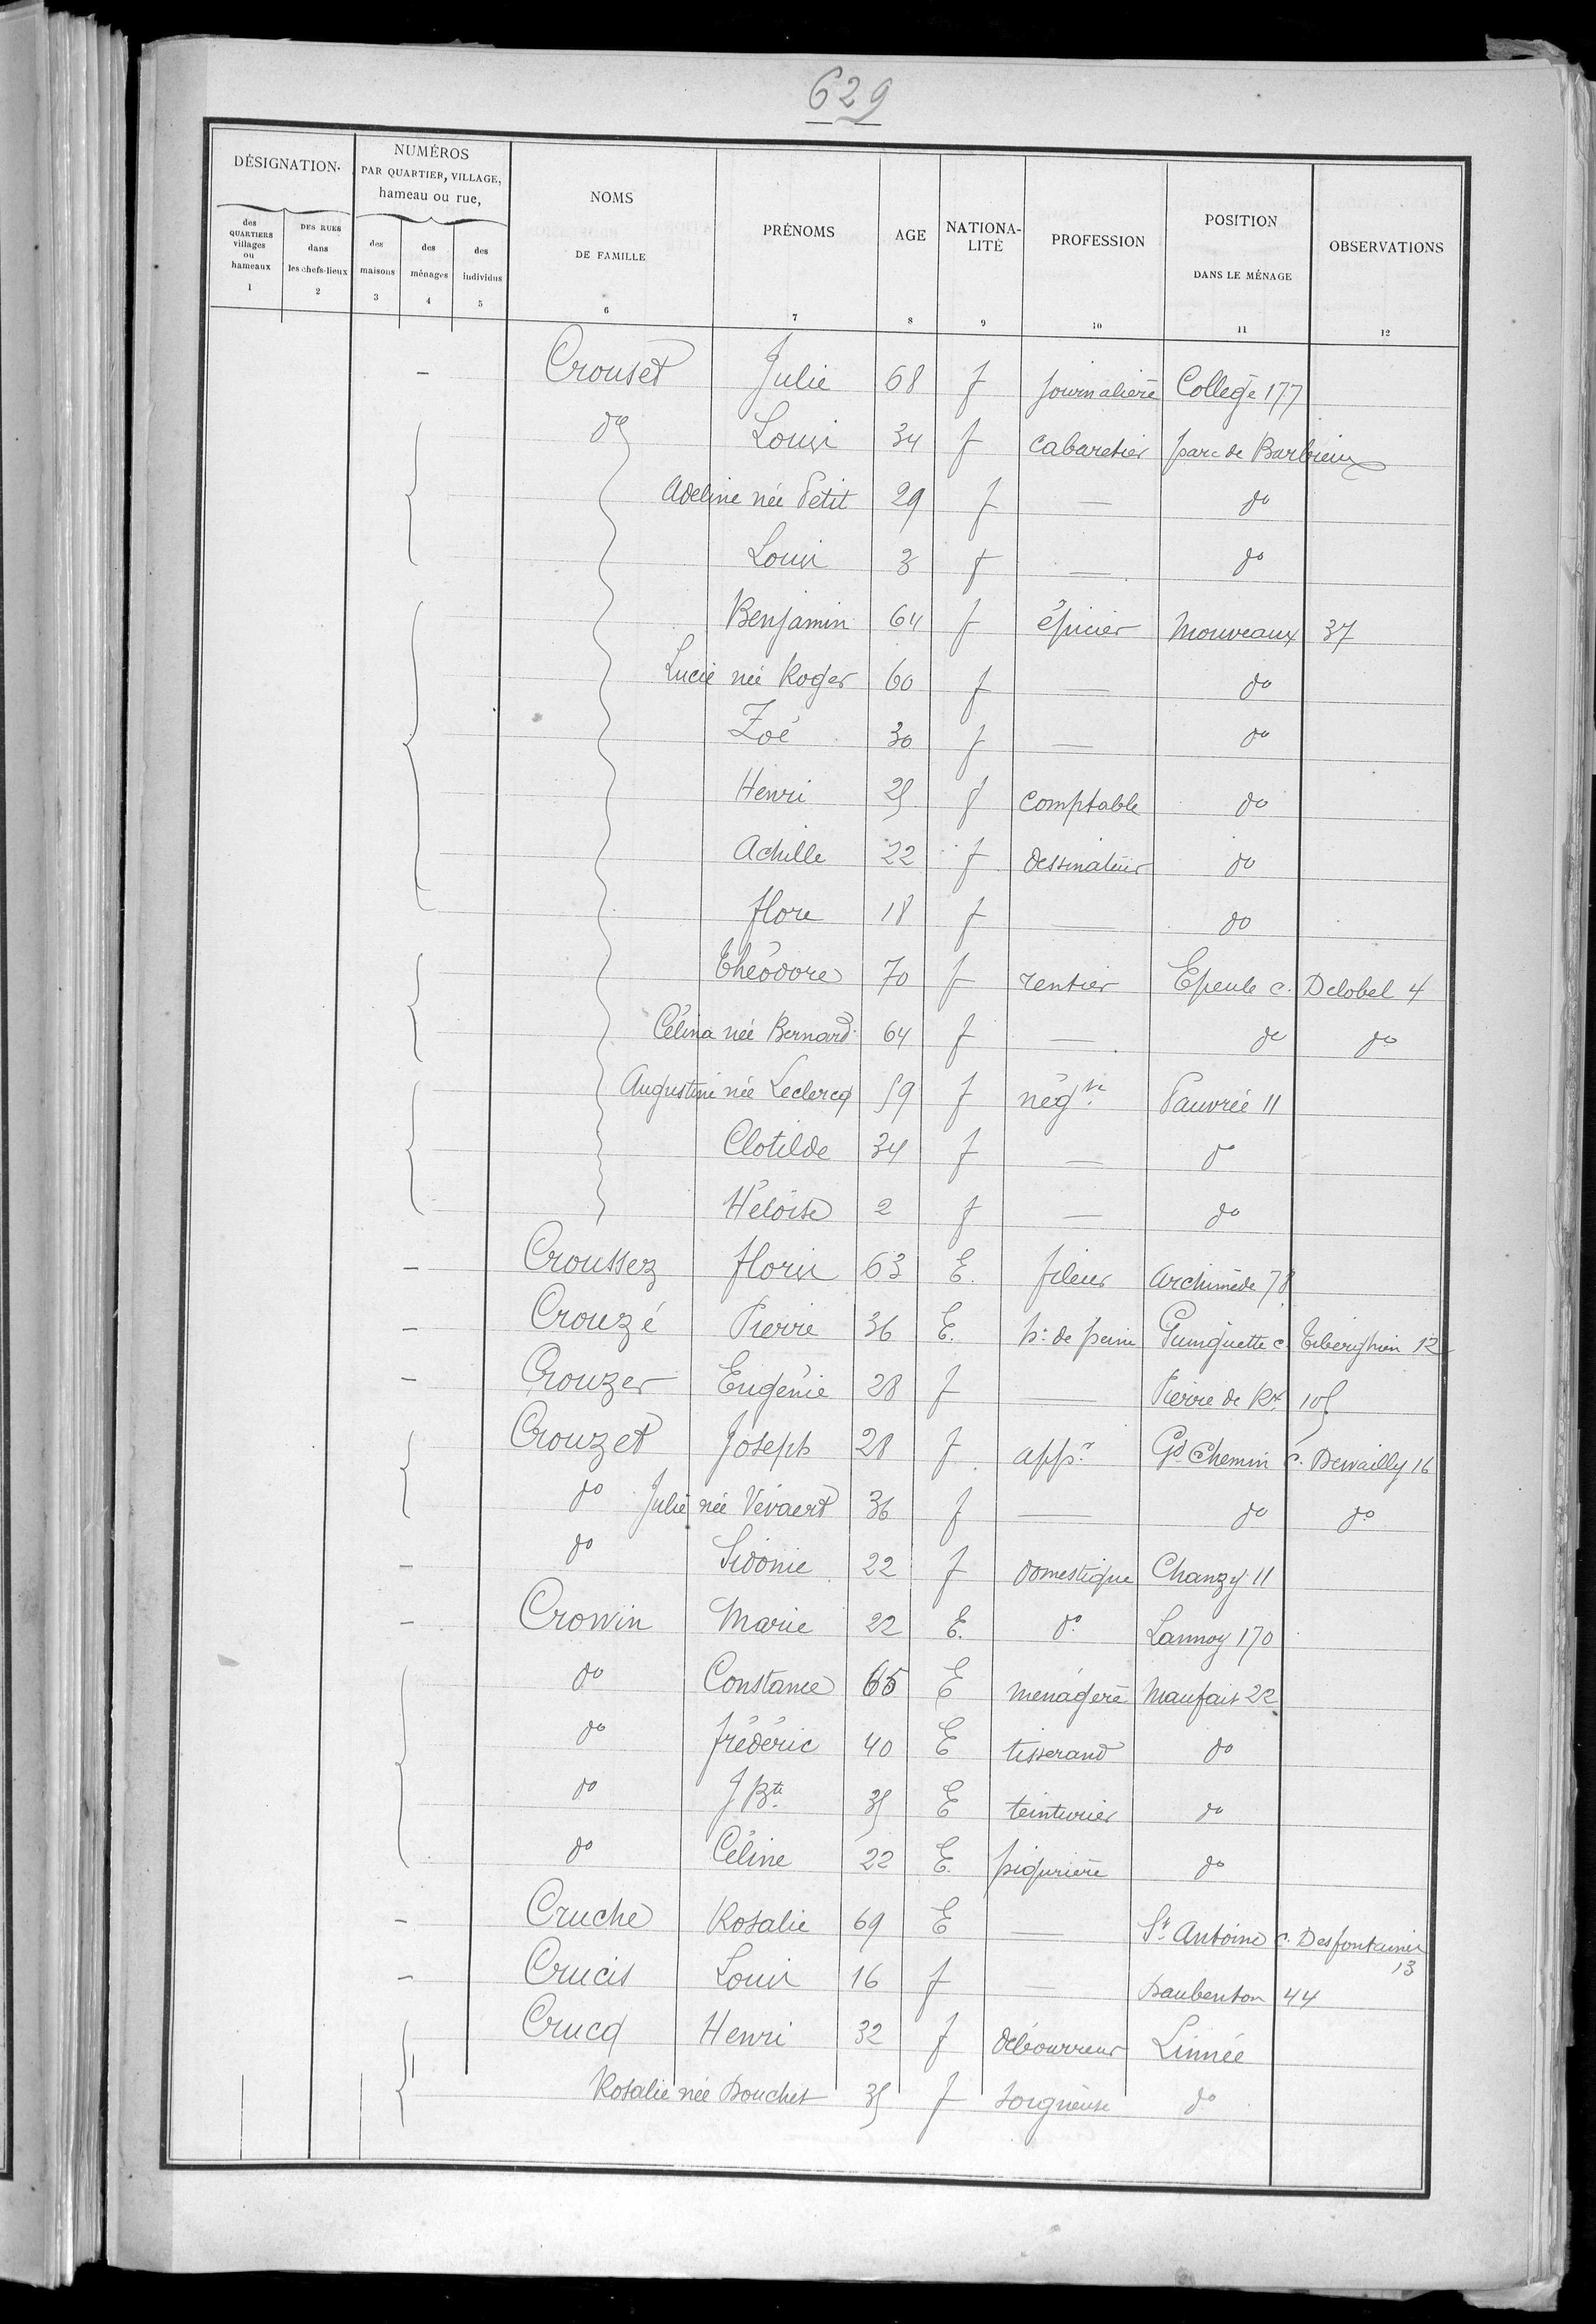 629
DÉSIGNATION.
NUMÉROS PAR QUARTIER, VILLAGE, hameau ou rue,
NOMS DE FAMILLE
PRÉNOMS
AGE
NATIONALITÉ
PROFESSION
POSITION DANS LE MÉNAGE
OBSERVATIONS
des QUARTIERS villages ou hameaux
DES RUES dans les chefs-lieux
des maisons
des ménages
des individus
1 2 3 4 5 6 7 8 9 10 11 12
– Crouset Julie 68 f journalière Collège 177
do Louis 34 f cabaretier parc de Barbieux
Adeline née Petit 29 f — do
Louis 3 f — do
Benjamin 64 f épicier Mouveaux 37
Lucie née Roger 60 f — do
Zoé 30 f — do
Henri 25 f comptable do
Achille 22 f dessinateur do
flore 18 f — do
Théodore 70 f rentier Epeule c. Delobel 4
Célina née Bernard 64 f — do do
Augustine née Leclercq 59 f négte Pauvrée 11
Clotilde 34 f — do
Héloïse 2 f — do
– Croussez floris 63 E. fileur Archimède 78
– Crouzé Pierre 36 E. h. de peine Guinguette c. Tiberghien 12
– Crouzer Eugénie 28 f — Pierre de Rx 105
Crouzet Joseph 28 f appr Gd Chemin c. Dewailly 16
do Julie née Vévaert 36 f — do do
– do Sidonie 22 f domestique Chanzy 11
– Crowin Marie 22 E. do Lannoy 170
do Constance 65 E ménagère Maufait 22
do frédéric 40 E tisserand do
do J Bte 35 E teinturier do
do Céline 22 E. piqurière do
– Cruche Rosalie 69 E — St Antoine c. Desfontaines 13
– Crucis Louis 16 f — Daubenton 44
Crucq Henri 32 f débourreur Linnée
Rosalie née Douchet 35 f soigneuse do